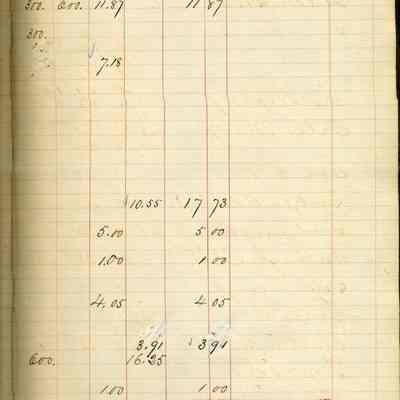 300. 600. 11.87 11 87
300.
7.18
10.55 17 73
5.00 5 00
1.00 1 00
4.05 4 05
3.91 3 91
600. 16.25
1.00 1 00